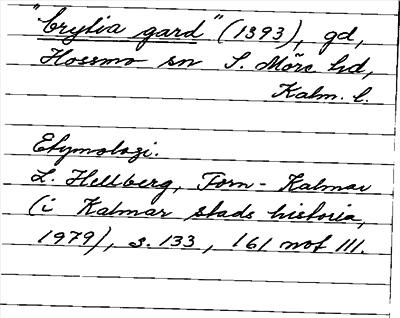 "brylia gard" (1393), gd,
Hossmo sn S. Möre hd,
Kalm. l.
Etymologi.
L. Hellberg, Forn-Kalmar
(i Kalmar stads historia,
1979), s. 133, 161 not 111.